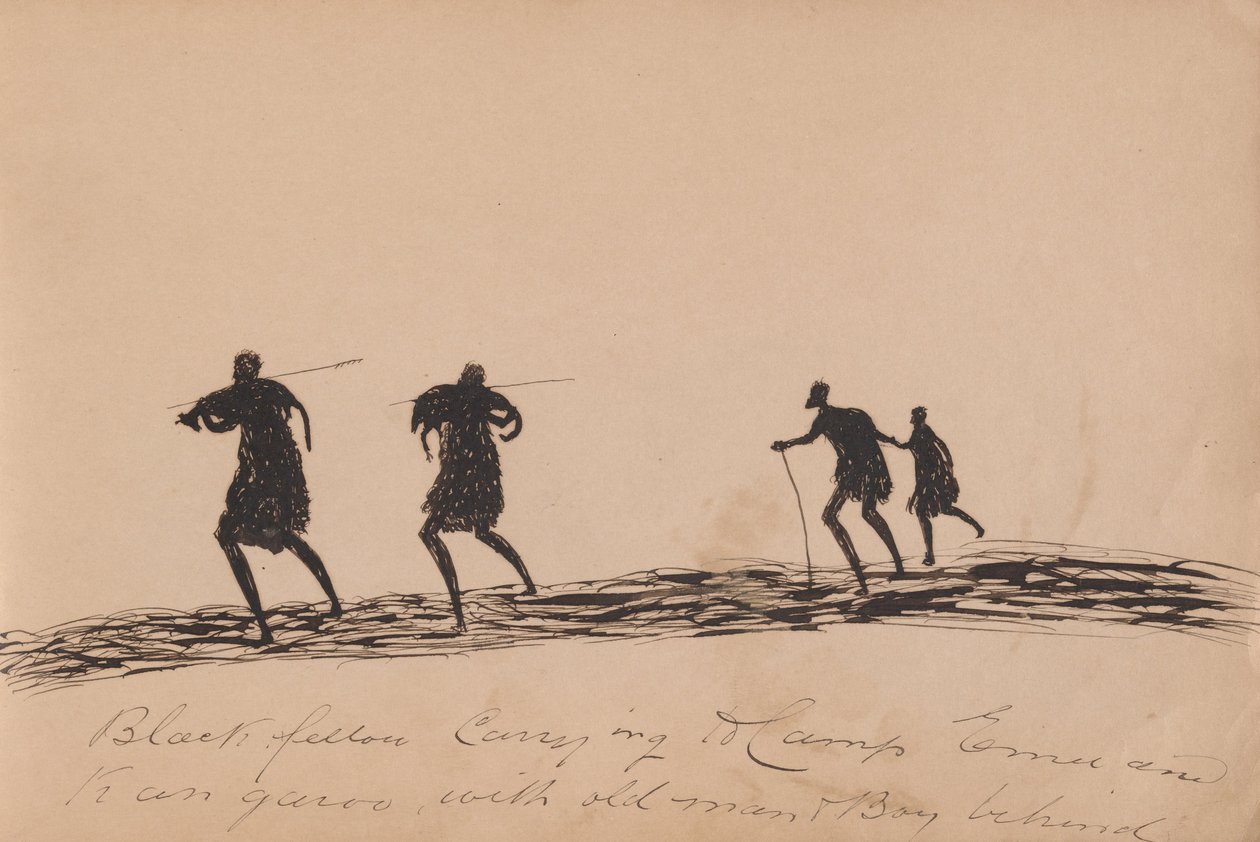 Black fellow Carrying to Camp Emu and
Kangaroo, with old man & Boy behind